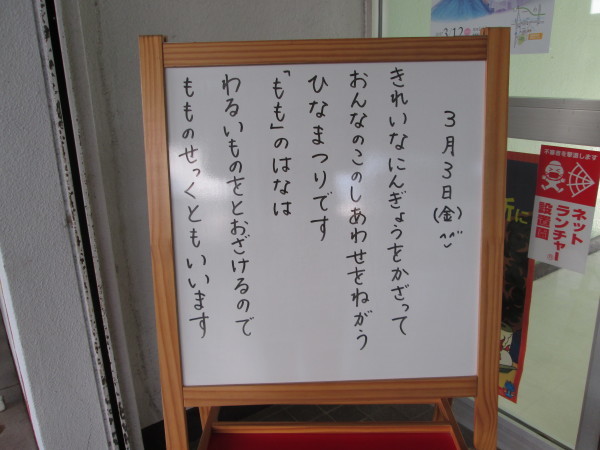 3月3日(金)^^
きれいなにんぎょうをかざって
おんなのこのしあわせをねがう
ひなまつりです
「もも」のはなは
わるいものをとおざけるので
もものせっくともいいます
3.12
不審者を撃退します
ネット
ランチャー
設置園
に